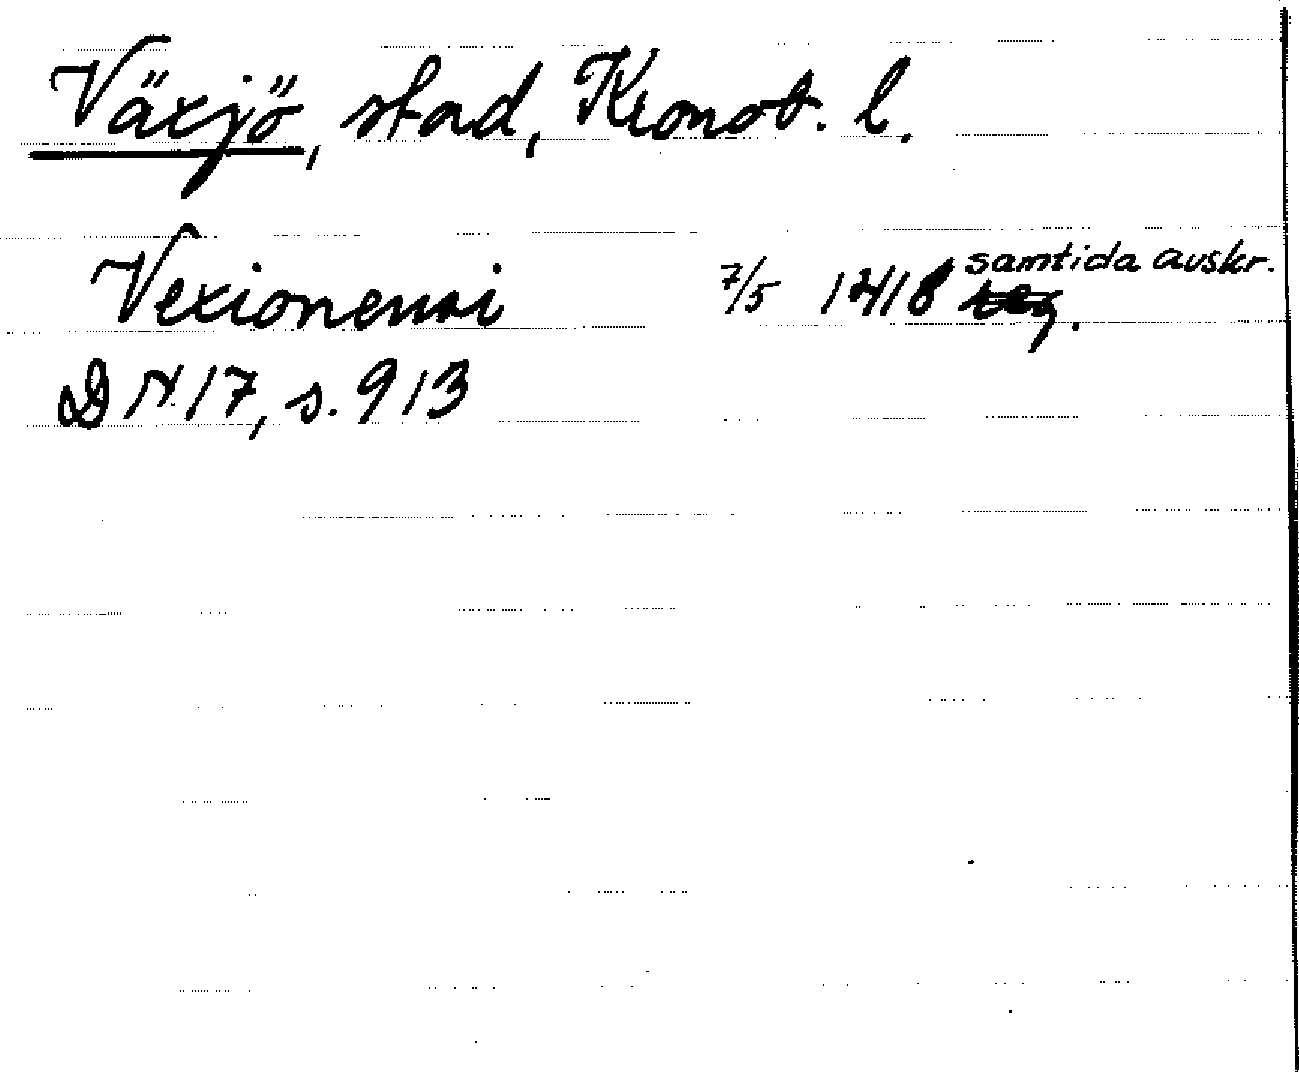 Växjö, stad, Kronob. l.
Vexionensi 7/5 1418 samtida avskr.
DN 17, s. 913